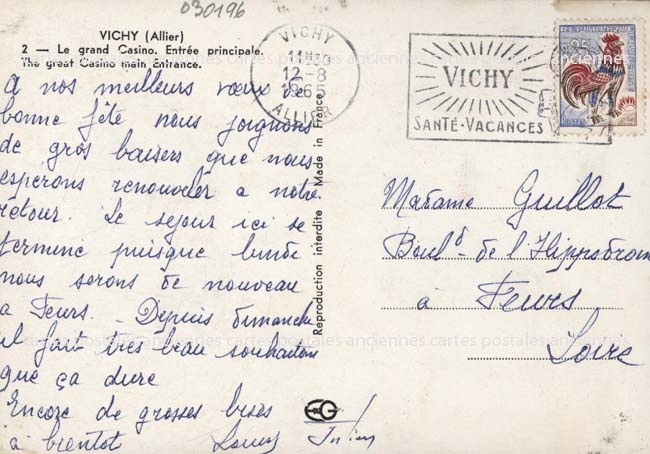 030196
VICHY (Allier)
2 — Le grand Casino. Entrée principale.
The great Casino main Entrance.
VICHY
11H30
12-8
1965
ALLIER
VICHY
SANTÉ-VACANCES
0,25
A nos meilleurs vœux de
bonne fête nous joignons
de gros baisers que nous
esperons renouveler a notre
retour. Le sejour ici se
termine puisque lundi
nous serons de nouveau
a Feurs. - Depuis dimanche
il fait très beau souhaitons
que ça dure
Encore de grosses bises
à bientot
Reproduction interdite Made in France
Madame Guillot
Bould de l'Hippodrome
à Feurs
Loire
cartes postales anciennes cartes postales anciennes cartes postales anciennes
cartes postales anciennes cartes postales anciennes cartes postales anciennes